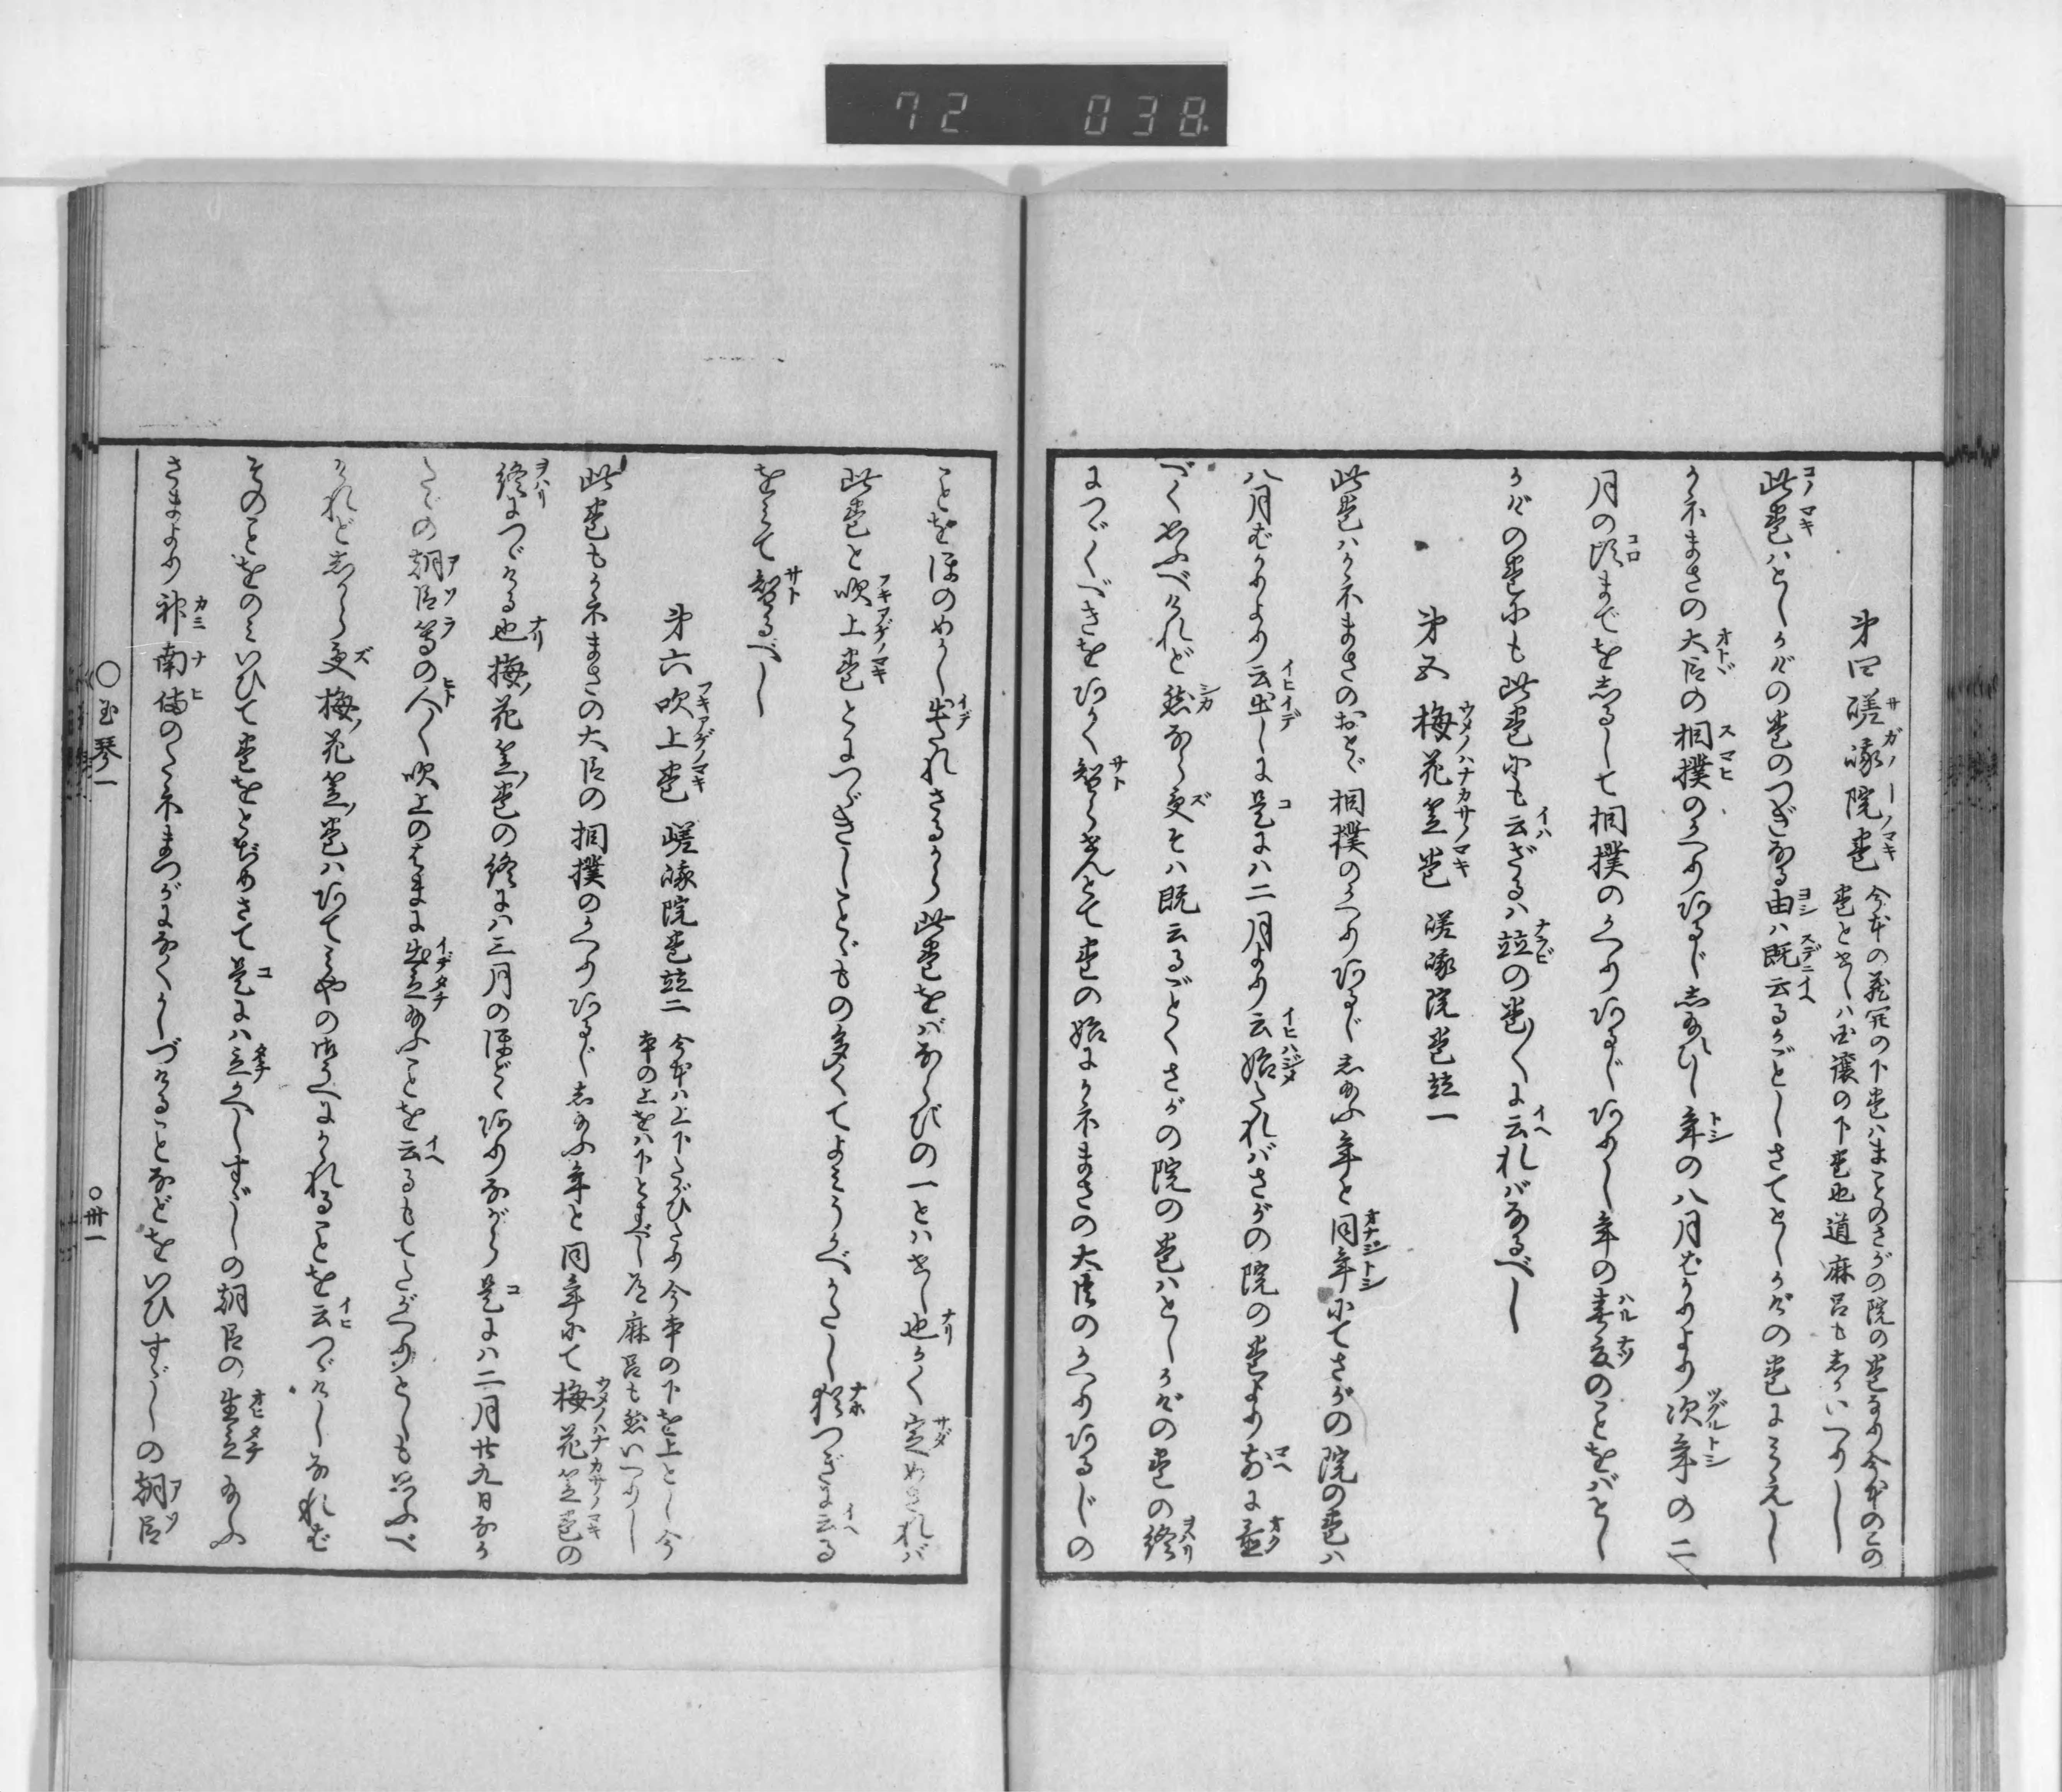 72 038
第四 嵯峨院巻 今本の蔵开の下巻ハまことのさがの院の巻なり今本のこの
巻とせしハ国譲の下巻也道麻呂もしかいつりし
此巻ハとしかげの巻のつぎなる由ハ既云るがごとしさてとしかげの巻にみえし
かネまさの大臣の相撲のかへりあるじしたまひし年の八月ばかりより次年の二
月の頃までをしるして相撲のかへりあるじありし年の春夏のことをバとし
かげの巻にも此巻にも云ざるハ竝の巻〳〵に云れバなるべし
第五 梅花笠巻 嵯峨院巻竝一
此巻ハかネまさのおとゞ相撲のかへりあるじしたまふ年と同年にてさがの院の巻ハ
八月ばかりより云出しに是にハ二月より云始たれバさがの院の巻より前に置
べく思ふべけれど然ならずそハ既云るごとくさがの院の巻ハとしかげの巻の終
につゞくべきをあらく智らせんとて巻の始にかネまさの大臣のかへりあるじの
ことをほのめかし出されさるから此巻をバならびの一とハせし也かく定めざれバ
此巻と吹上巻とにつゞきしことゞもの多くてよみうべかたし猶つぎに云る
をみて智るべし
第六 吹上巻 嵯峨院巻竝二 今本ハ上下たがひたり今本の下を上とし今
本の上をハ下とすべし道麻呂も然いつりし
此巻もかネまさの大臣の相撲のかへりあるじしたまふ年と同年にて梅花笠巻の
終につゞける也梅ノ花笠ノ巻の終にハ三月のほどゝありながら是にハ二月廿九日なか
たゞの朝臣等の人〳〵吹上のはまに出立たまふことを云るもてたがへりとしも思ふべ
けれどしからず梅ノ花笠ノ巻ハあてみやの御うへにかゝれることを云つゞけしなれば
そのことをのミいひて巻をとぢめさて是にハ立かへりすゞしの朝臣の生立たまふ
さまより神南備のたネまつがになくかしづけることなどをいひすゞしの朝臣
○玉琴一 ○卅一